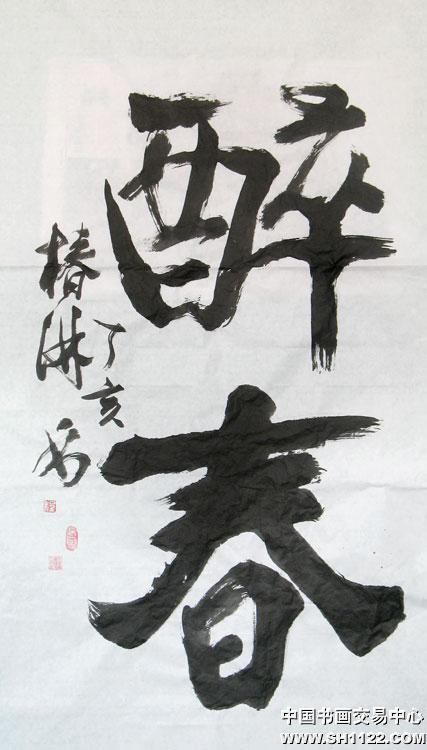 醉春
丁亥
椿淋书
中国书画交易中心
WWW.SH1122.COM